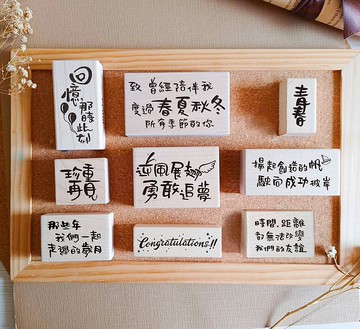 回憶
那時此刻
致 曾經陪伴我
度過春夏秋冬
所有季節的你
青春
珍重
再見
逆風展翅
勇敢追夢
揚起創造的帆
駛向成功彼岸
那些年
我們一起
走過的歲月
Congratulations!!
時間,距離
都無法改變
我們的友誼